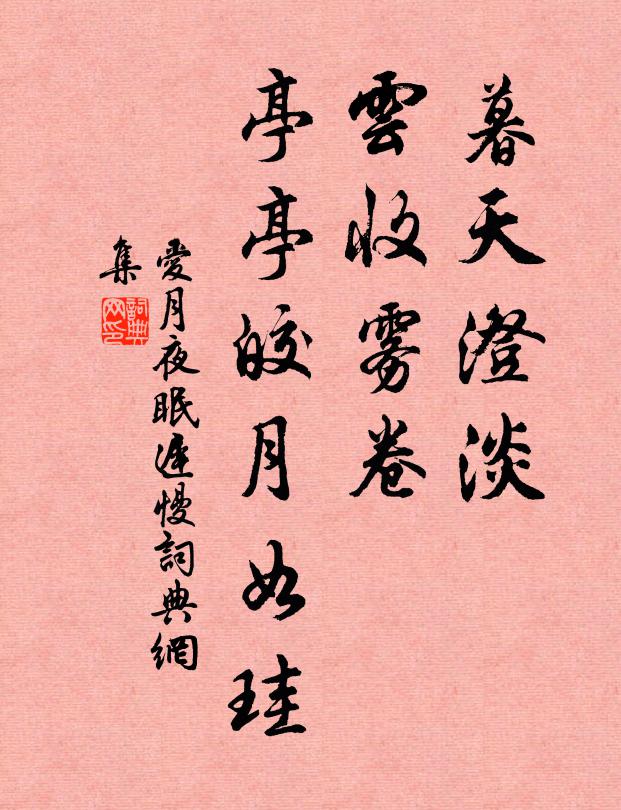 暮天澄淡
雲收霧卷
亭亭皎月如珪
愛月夜眠遲慢詞典網
集
詞典
网印